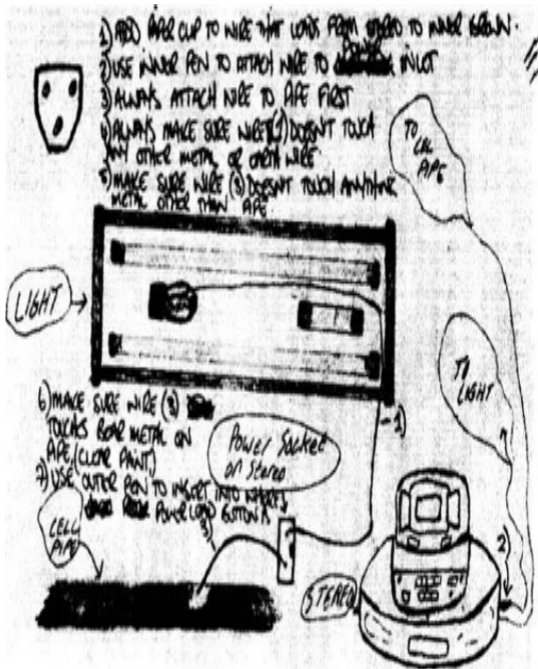 1) ADD PAPER CLIP TO WIRE THAT LOADS FROM STEREO TO INNER BROWN.
2) USE INNER PEN TO ATTACH WIRE TO POWER INLOT
3) ALWAYS ATTACH WIRE TO PIPE FIRST
4) ALWAYS MAKE SURE WIRE (1) DOESNT TOUCH
ANY OTHER METAL OR EARTH WIRE
5) MAKE SURE WIRE (3) DOESNT TOUCH ANYTHING
METAL OTHER THAN PIPE.
TO
CELL
PIPE
LIGHT
TO
LIGHT
6) MAKE SURE WIRE (3)
TOUCHES BEAR METAL ON
PIPE, (CLEAR PAINT.)
7) USE OUTER PEN TO INSERT INTO
POWER LOAD BUTTON
Power Socket
on Stereo
1)
2)
3)
CELL
PIPE
STEREO